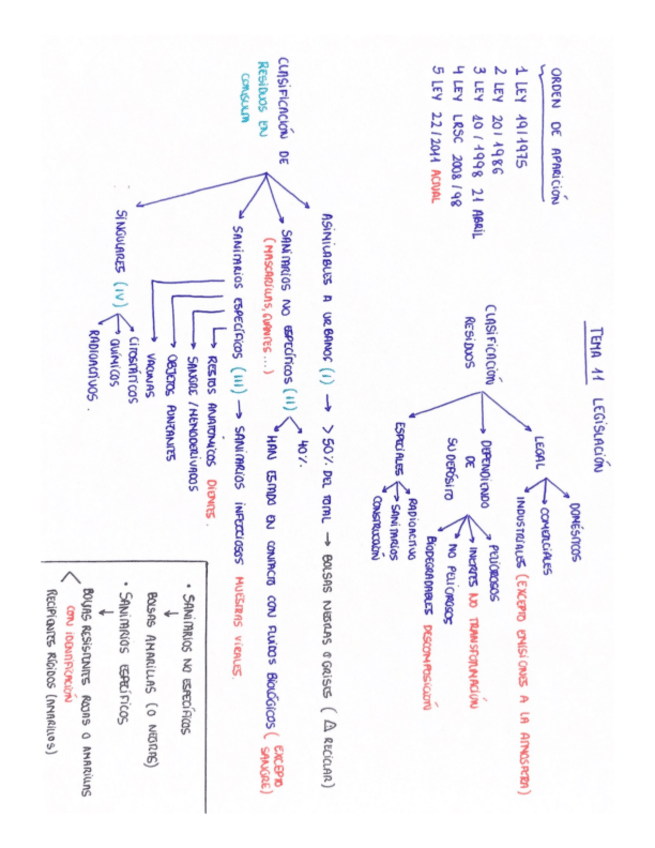 TEMA 11 LEGISLACIÓN
ORDEN DE APARICIÓN
1 LEY 19/1975
2 LEY 20/1986
3 LEY 10/1998 21 ABRIL
4 LEY LRSC 2008/98
5 LEY 22/2011 ACTUAL
CLASIFICACIÓN
RESIDUOS
LEGAL
DOMÉSTICOS
COMERCIALES
INDUSTRIALES (EXCEPTO EMISIONES A LA ATMOSFERA)
DEPENDIENDO
DE
SU DEPÓSITO
PELIGROSOS
INERTES NO TRANSFORMACIÓN
NO PELIGROSOS
BIODEGRADABLES DESCOMPOSICIÓN
ESPECIALES
RADIOACTIVO
SANITARIOS
CONSTRUCCIÓN
CLASIFICACIÓN DE
RESIDUOS EN
CONSULTA
ASIMILABLES A URBANOS (I) → > 50% DEL TOTAL → BOLSAS NEGRAS O GRISES (⚠ RECICLAR)
SANITARIOS NO ESPECÍFICOS (II)
(MASCARILLAS, GUANTES...)
40%.
HAN ESTADO EN CONTACTO CON FLUIDOS BIOLÓGICOS (EXCEPTO
SANGRE)
SANITARIOS ESPECÍFICOS (III) → SANITARIOS INFECCIOSOS MUESTRAS VIRALES.
RESTOS ANATOMICOS DIENTES.
SANGRE / HEMODERIVADOS
OBJETOS PUNZANTES
VACUNAS
SINGULARES (IV)
CITOSTÁTICOS
QUÍMICOS
RADIOACTIVOS.
• SANITARIOS NO ESPECÍFICOS
↓
BOLSAS AMARILLAS (O NEGRAS)
• SANITARIOS ESPECÍFICOS
↓
BOLSAS RESISTENTES ROJAS O AMARILLAS
CON IDENTIFICACIÓN
RECIPIENTES RÍGIDOS (AMARILLOS)